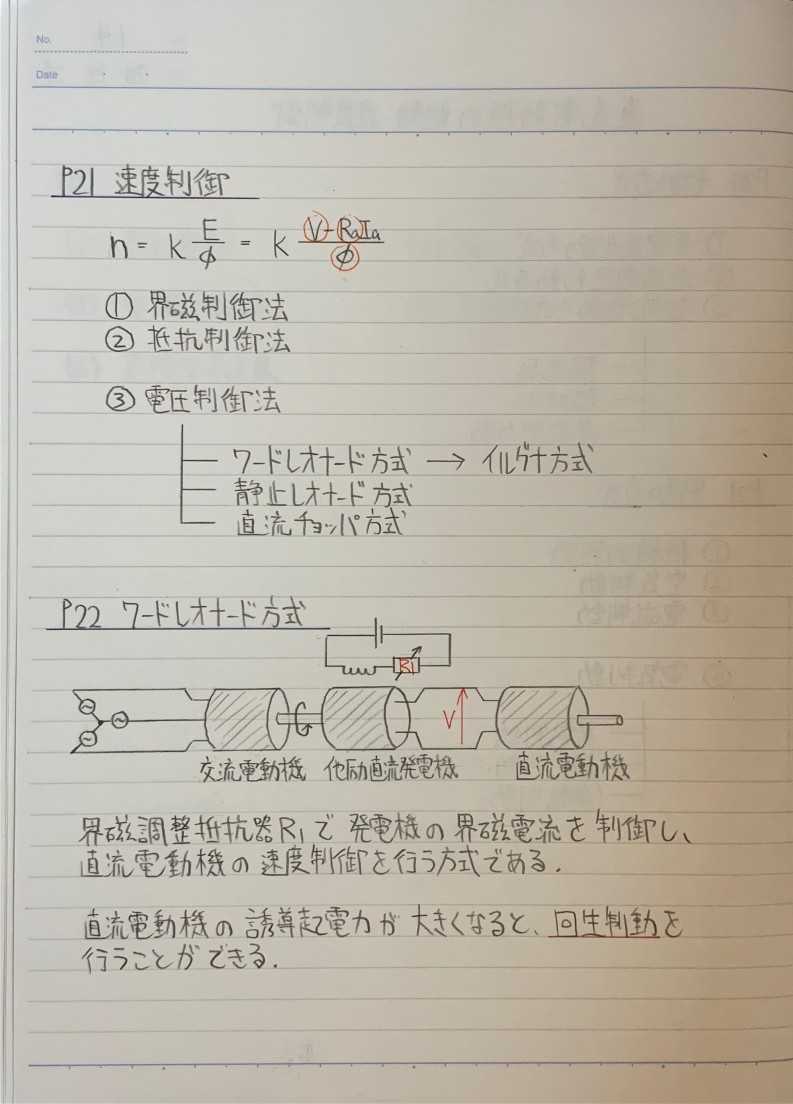 No.
Date
P21 速度制御
n = k E/φ = k (V-RaIa)/φ
① 界磁制御法
② 抵抗制御法
③ 電圧制御法
ワードレオナード方式 → イルグナ方式
静止レオナード方式
直流チョッパ方式
P22 ワードレオナード方式
R1
V
交流電動機 他励直流発電機 直流電動機
界磁調整抵抗器R1で発電機の界磁電流を制御し、
直流電動機の速度制御を行う方式である.
直流電動機の誘導起電力が大きくなると、回生制動を
行うことができる.